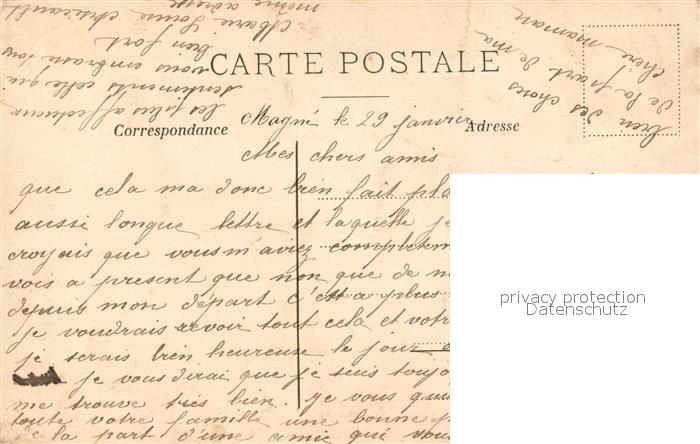 CARTE POSTALE
Correspondance
Adresse
Magné le 29 janvier
Mes chers amis
que cela ma donc bien fait
aussi longue lettre et laquelle je
croyais que vous m'aviez
vois a present que non que de
depuis mon départ c'est a plus
je voudrais revoir tout cela et
je serais bien heureuse le jour
je vous dirai que je suis
me trouve très bien. je vous
toute votre famille une bonne
de la part d'une amie qui vous
les plus affectueux
sentiments celle qui
vous embrasse tous
bien fort
Marie Louise
même adresse
bien des choses
de la part de ma
chere maman
privacy protection
Datenschutz